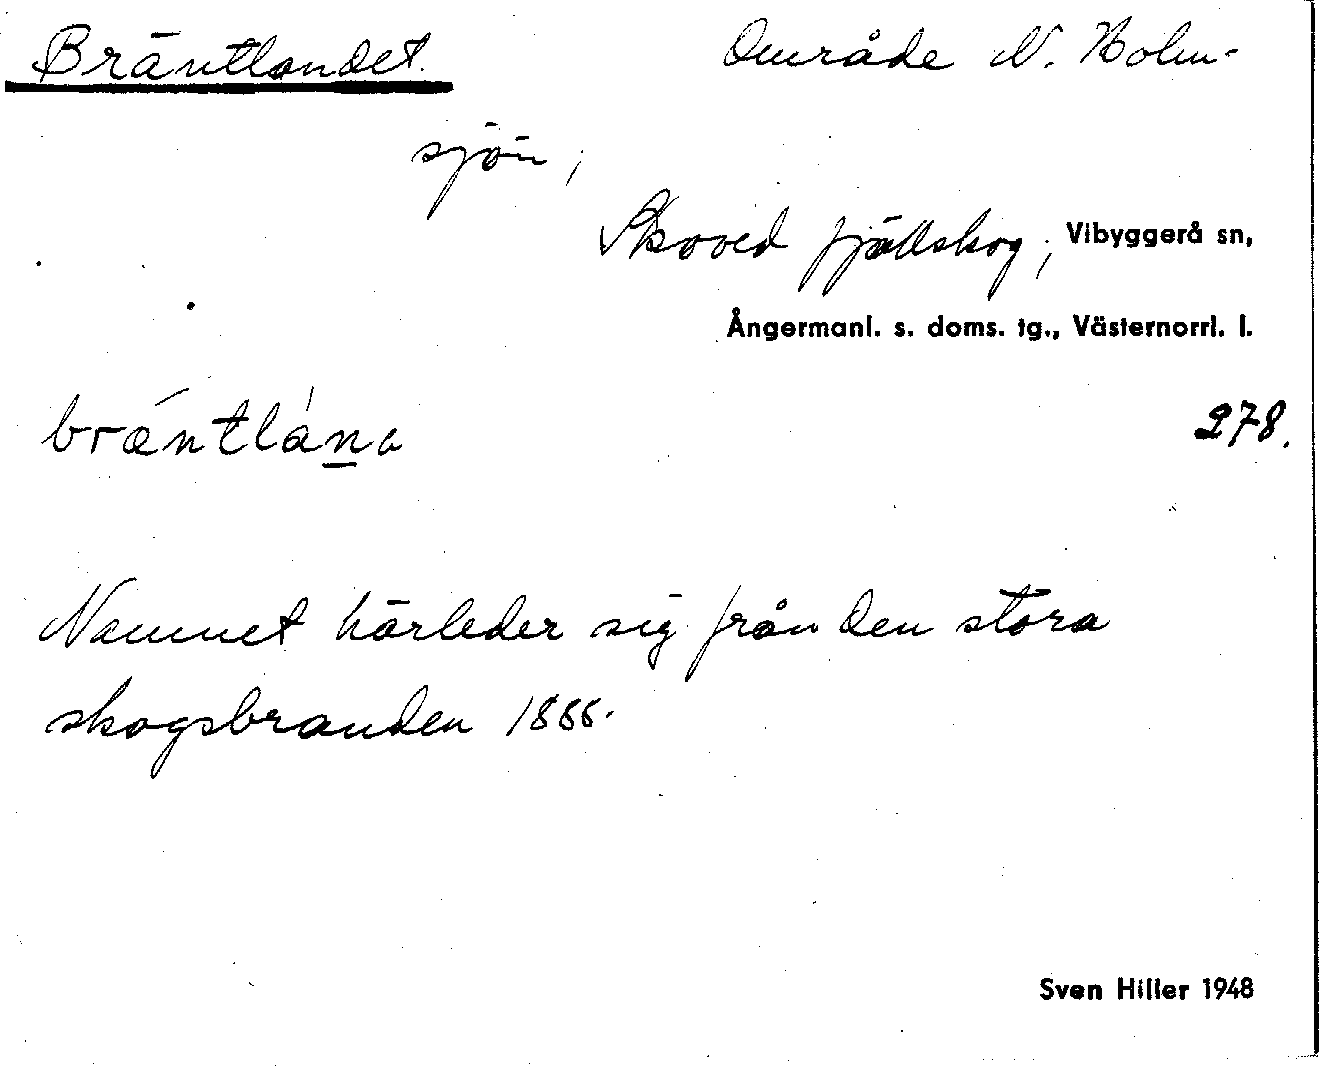 Bräntlandet. Område N. Holm-
sjön,
Skoved fjällskog, Vibyggerå sn,
Ångermanl. s. doms. tg., Västernorrl. l.
bræ´ntlána 278.
Namnet härleder sig från den stora
skogsbranden 1888.
Sven Hiller 1948